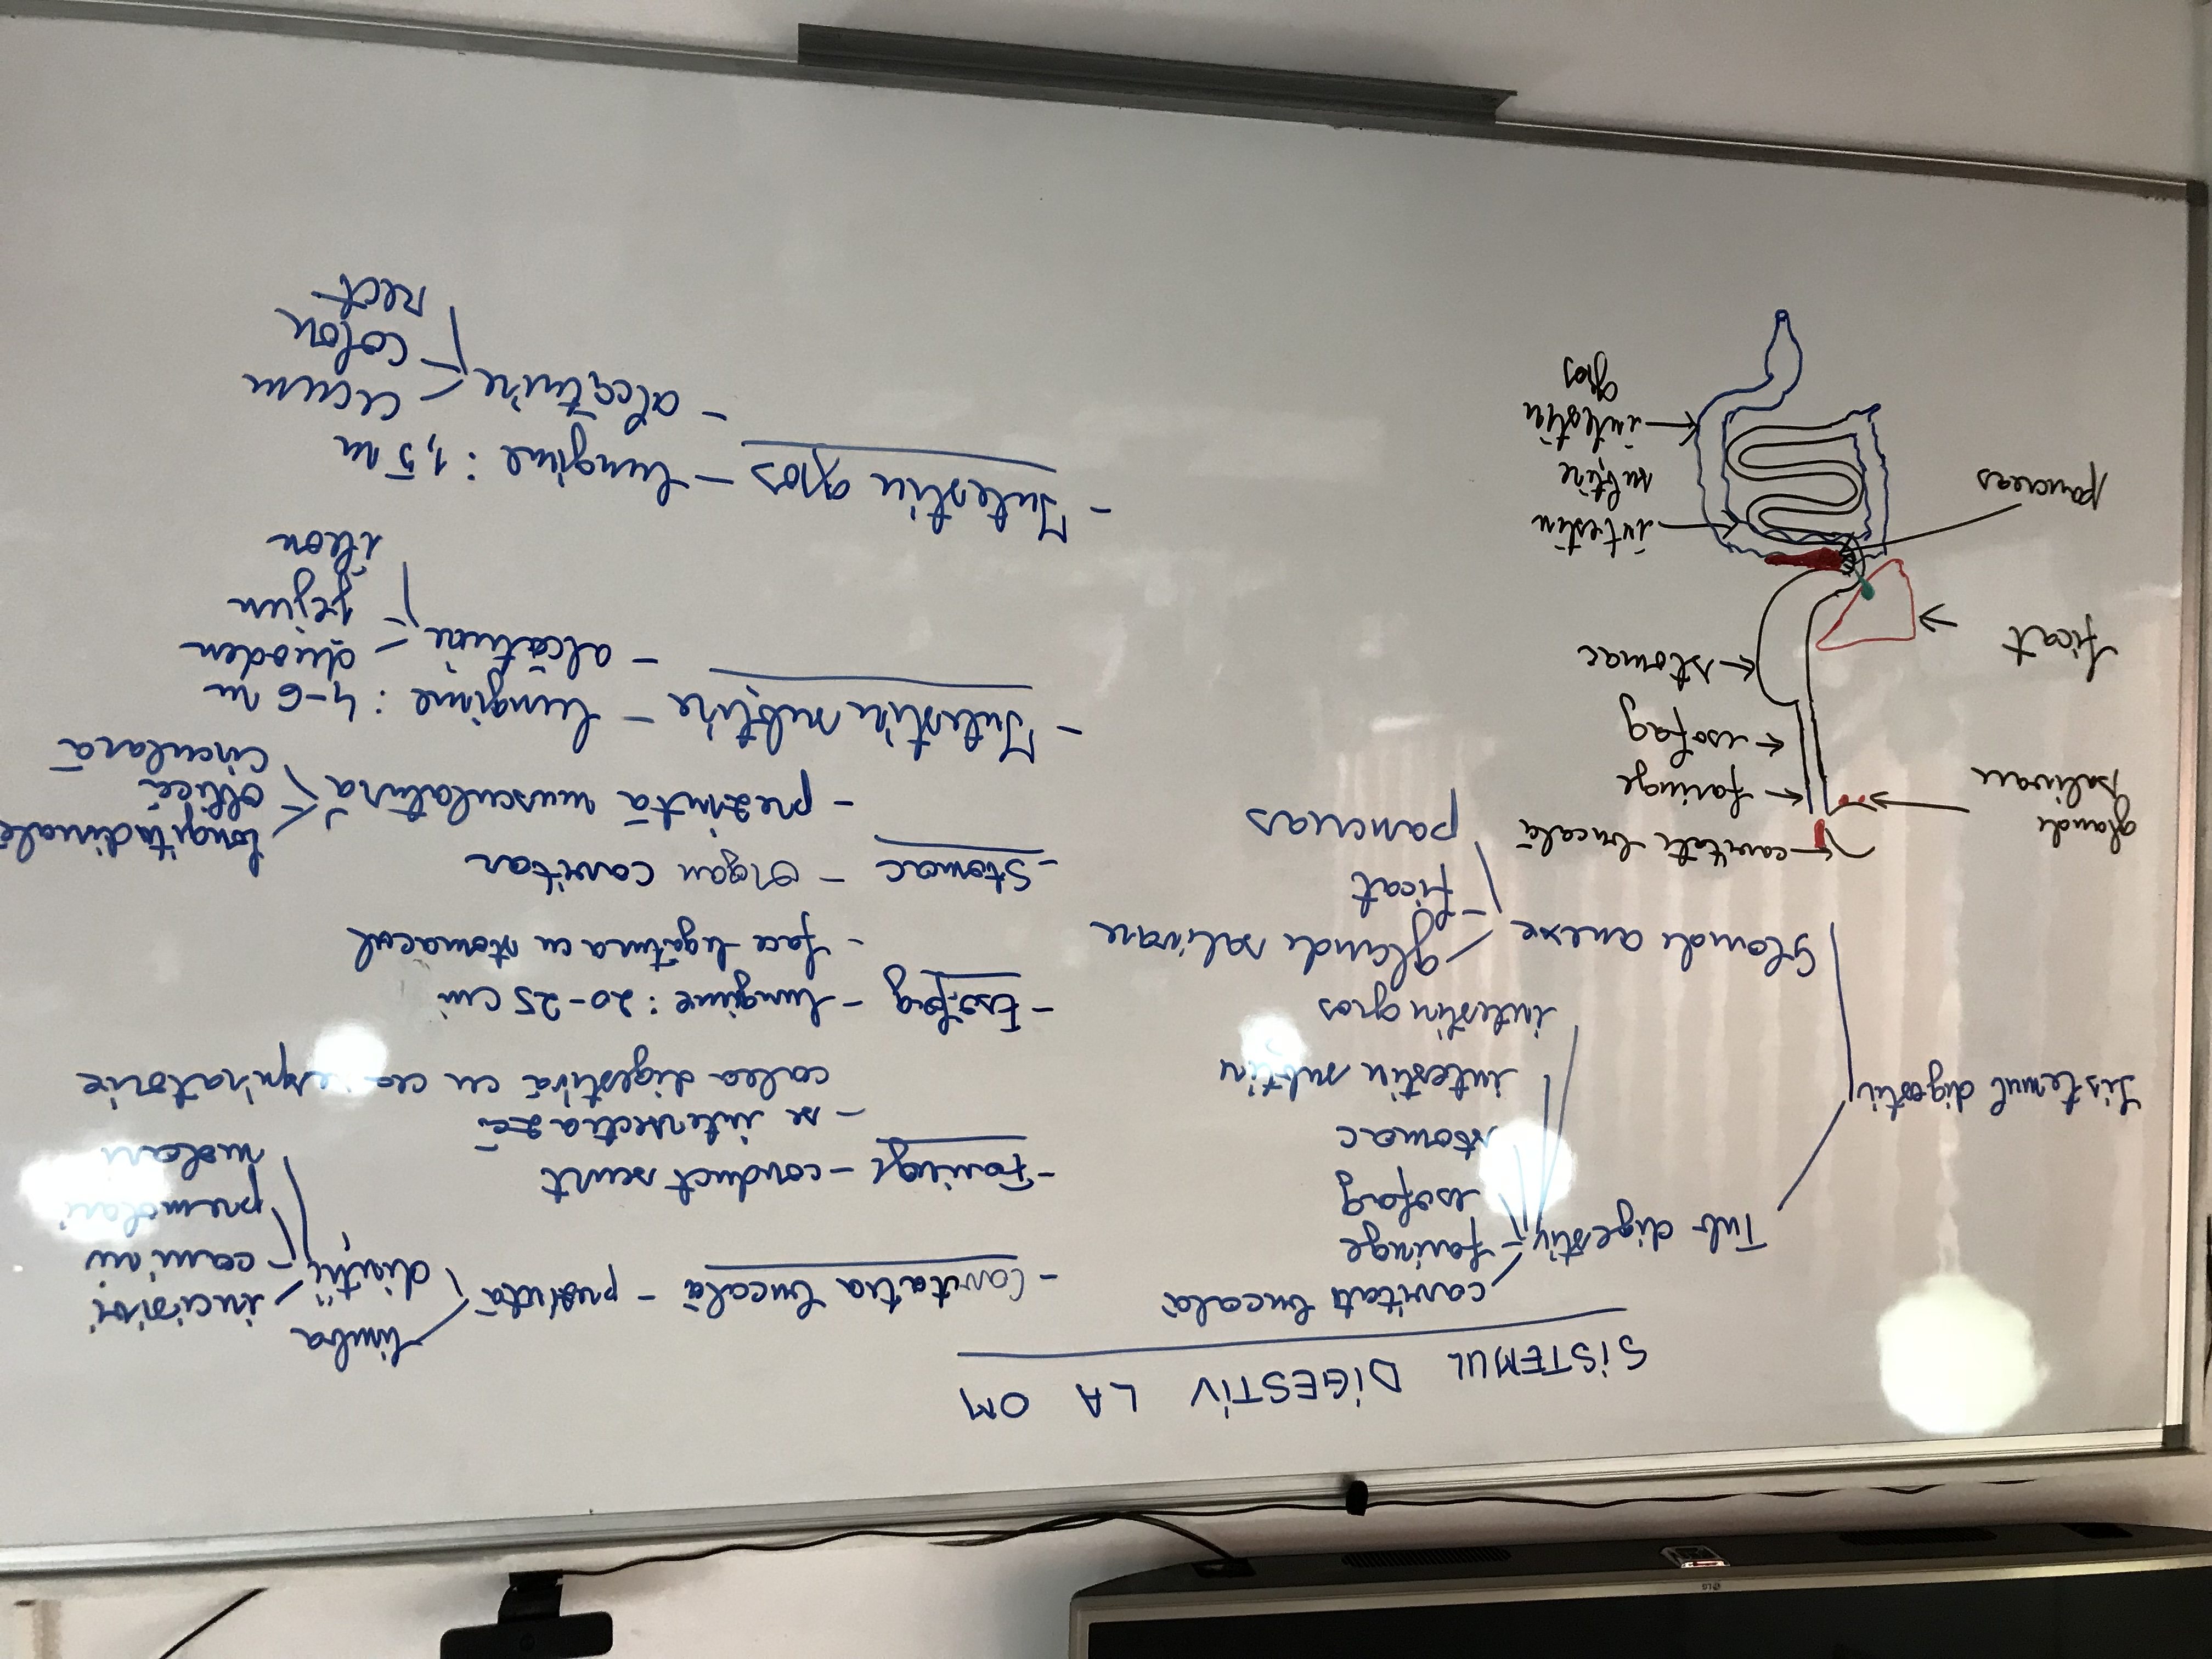 SISTEMUL DIGESTIV LA OM
Sistemul digestiv
Tub digestiv
cavitate bucală
faringe
esofag
stomac
intestin subțire
intestin gros
Glande anexe
glande salivare
ficat
pancreas
cavitate bucală
faringe
esofag
stomac
intestin
subțire
intestin
gros
glande
salivare
ficat
pancreas
- Cavitatea bucală - prezintă
limba
dinții
incisivi
canini
premolari
molari
- Faringe - conduct scurt
- se intersectează
calea digestivă cu cea respiratorie
- Esofag - lungime: 20-25 cm
- face legătura cu stomacul
- Stomac - organ cavitar
- prezintă musculatură
longitudinală
oblică
circulară
- Intestin subțire - lungime: 4-6 m
- alcătuire
duoden
jejun
ileon
- Intestin gros - lungime: 1,5 m
- alcătuire
cecum
colon
rect
LG